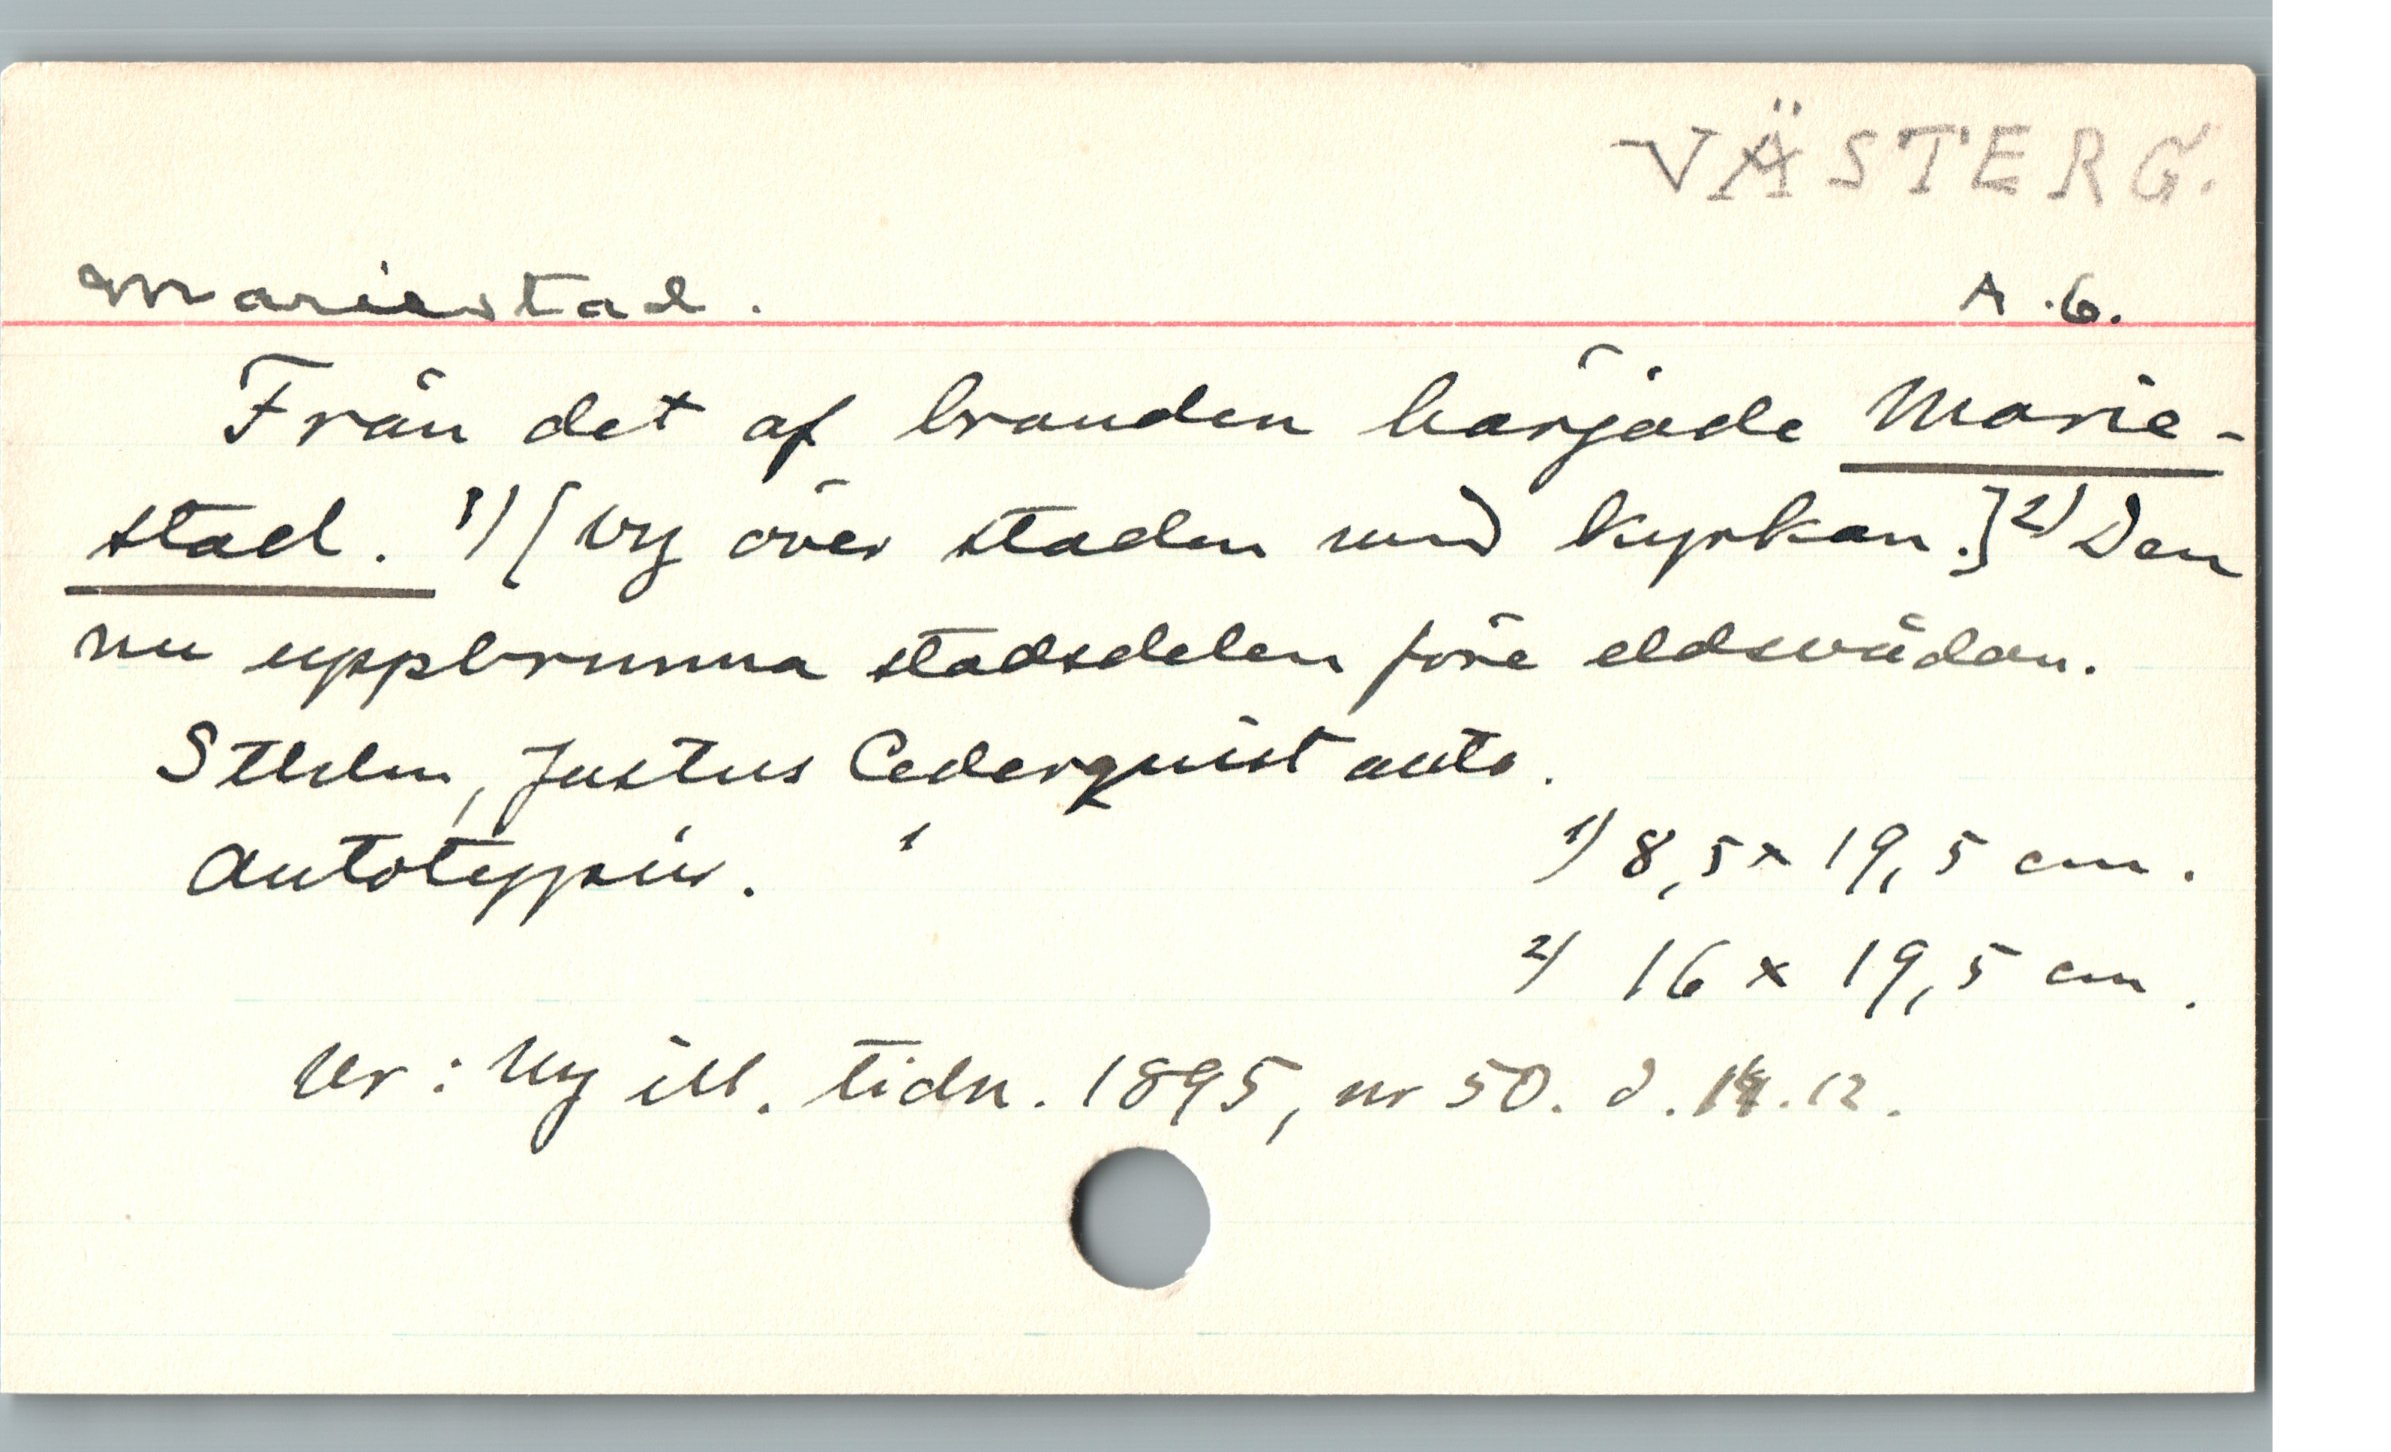 VÄSTERG.
Mariestad. A.6.
Från det af branden härjade Marie-
stad. 1) [Vy över staden med kyrkan.] 2) Den
nu uppbrunna stadsdelen före eldsvådan.
Sthlm, Justus Cederquist auto.
Autotypier. 1) 8,5 x 19,5 cm.
2) 16 x 19,5 cm.
Ur: Ny ill. tidn. 1895, nr 50. d. 14.12.